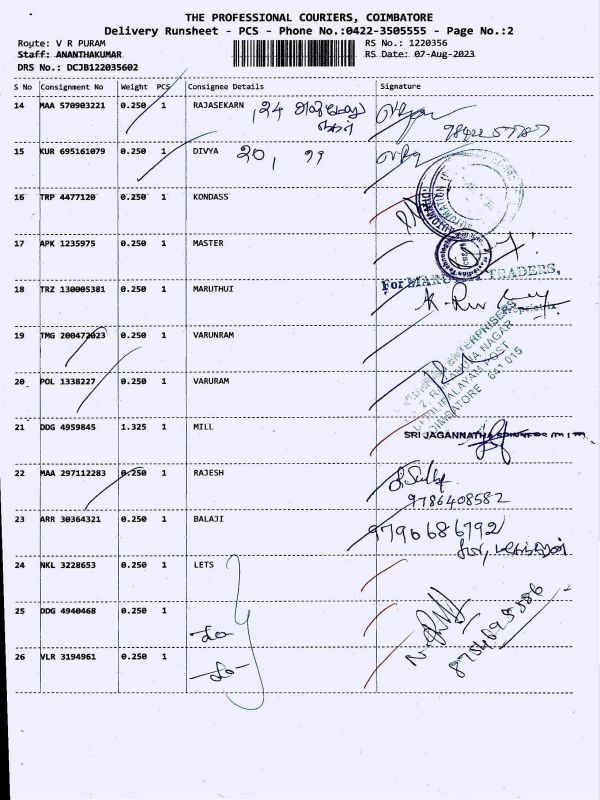 THE PROFESSIONAL COURIERS, COIMBATORE
Delivery Runsheet - PCS - Phone No.:0422-3505555 - Page No.:2
Route: V R PURAM RS No.: 1220356
Staff: ANANTHAKUMAR RS Date: 07-Aug-2023
DRS No.: DCJB122035602
S No Consignment No Weight PCS Consignee Details Signature
14 MAA 570903221 0.250 1 RAJASEKARN , 24
15 KUR 695161079 0.250 1 DIVYA 20,
16 TRP 4477120 0.250 1 KONDASS
17 APK 1235975 0.250 1 MASTER
For MARU TRADERS.
18 TRZ 130005381 0.250 1 MARUTHUI
19 TMG 200472023 0.250 1 VARUNRAM
ENTERPRISERS
NAGAR
POST
COIMBATORE 641 015
20 POL 1338227 0.250 1 VARURAM
21 DDG 4959845 1.325 1 MILL SRI JAGANNATHA
22 MAA 297112283 0.250 1 RAJESH
9786408582
23 ARR 30364321 0.250 1 BALAJI 9790686792
24 NKL 3228653 0.250 1 LETS
25 DDG 4940468 0.250 1
26 VLR 3194961 0.250 1